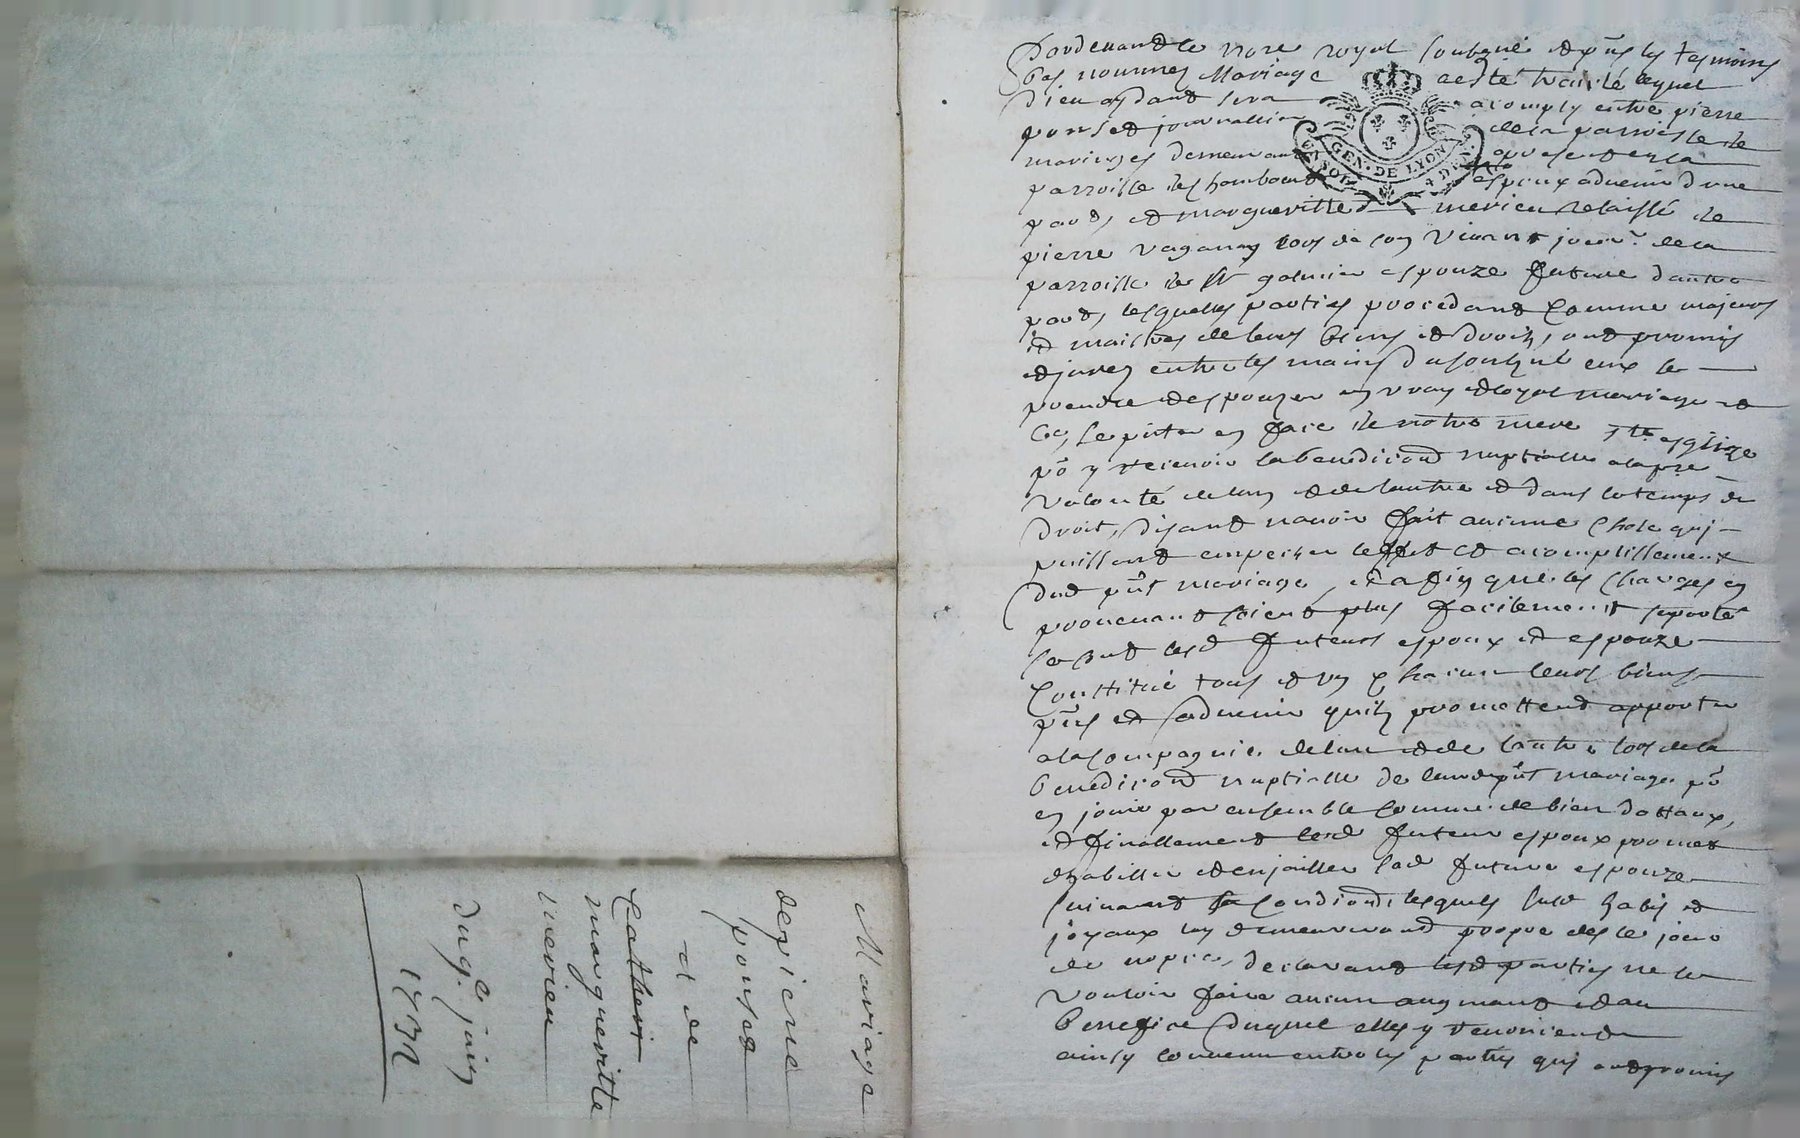 Pardevant le no.re royal soubsné et p.nts les tesmoins
bas nommes Mariage a esté traicté lequel
Dieu aydant sera acomply entre pierre
ponset journallier de la parroisse de
demeurant a present en la
parroisse de chambeuf espoux advenir d'une
part, et margueritte merieu relaissé de
pierre vaganay lors de son vivant jour.r de la
parroisse de St galmier espouze future dautre
part, lesquelles parties procedant comme majeurs
et maistres de leurs biens et droits, ont promis
et jurez entre les mains du soubsné eux se
prendre et espouzer en vray et loyal mariage et
ce, se pnter en face de notre mere Ste esglize
po.r y recevoir la benediction nuptialle a la p.re
volonté de lun et de lautre et dans le temps de
droit, disant navoir fait aucune chose qui
puissent empecher leffet et acomplissement
dud p.nt mariage, et afin que les charges en
provenant soient plus facilement suporté
se sont lesd futeurs espoux et espouze
constitué tous et un chacun leurs biens
p.nts et advenir quils promettent apporter
a la compagnie de lun et de lautre lors de la
benediction nuptialle de leurd p.nt mariage po.r
en jouir par ensemble comme de bien dottaux,
et finallement led futeur espoux promet
dhabiller et enjoailler lad future espouze
suivant sa condition lesquels susd habis et
joyaux luy demeureront propre des le jour
de nopce, declarant lesd parties ne se
vouloir faire aucun augmant et au
benefice duquel elles y renoncient
ainsy convenu entre les parties qui ont promis
Mariage
de pierre
ponset
et de
Catheri
margueritte
merieu
du 9.e juin
1732
GEN. DE LYON
4 DEN.